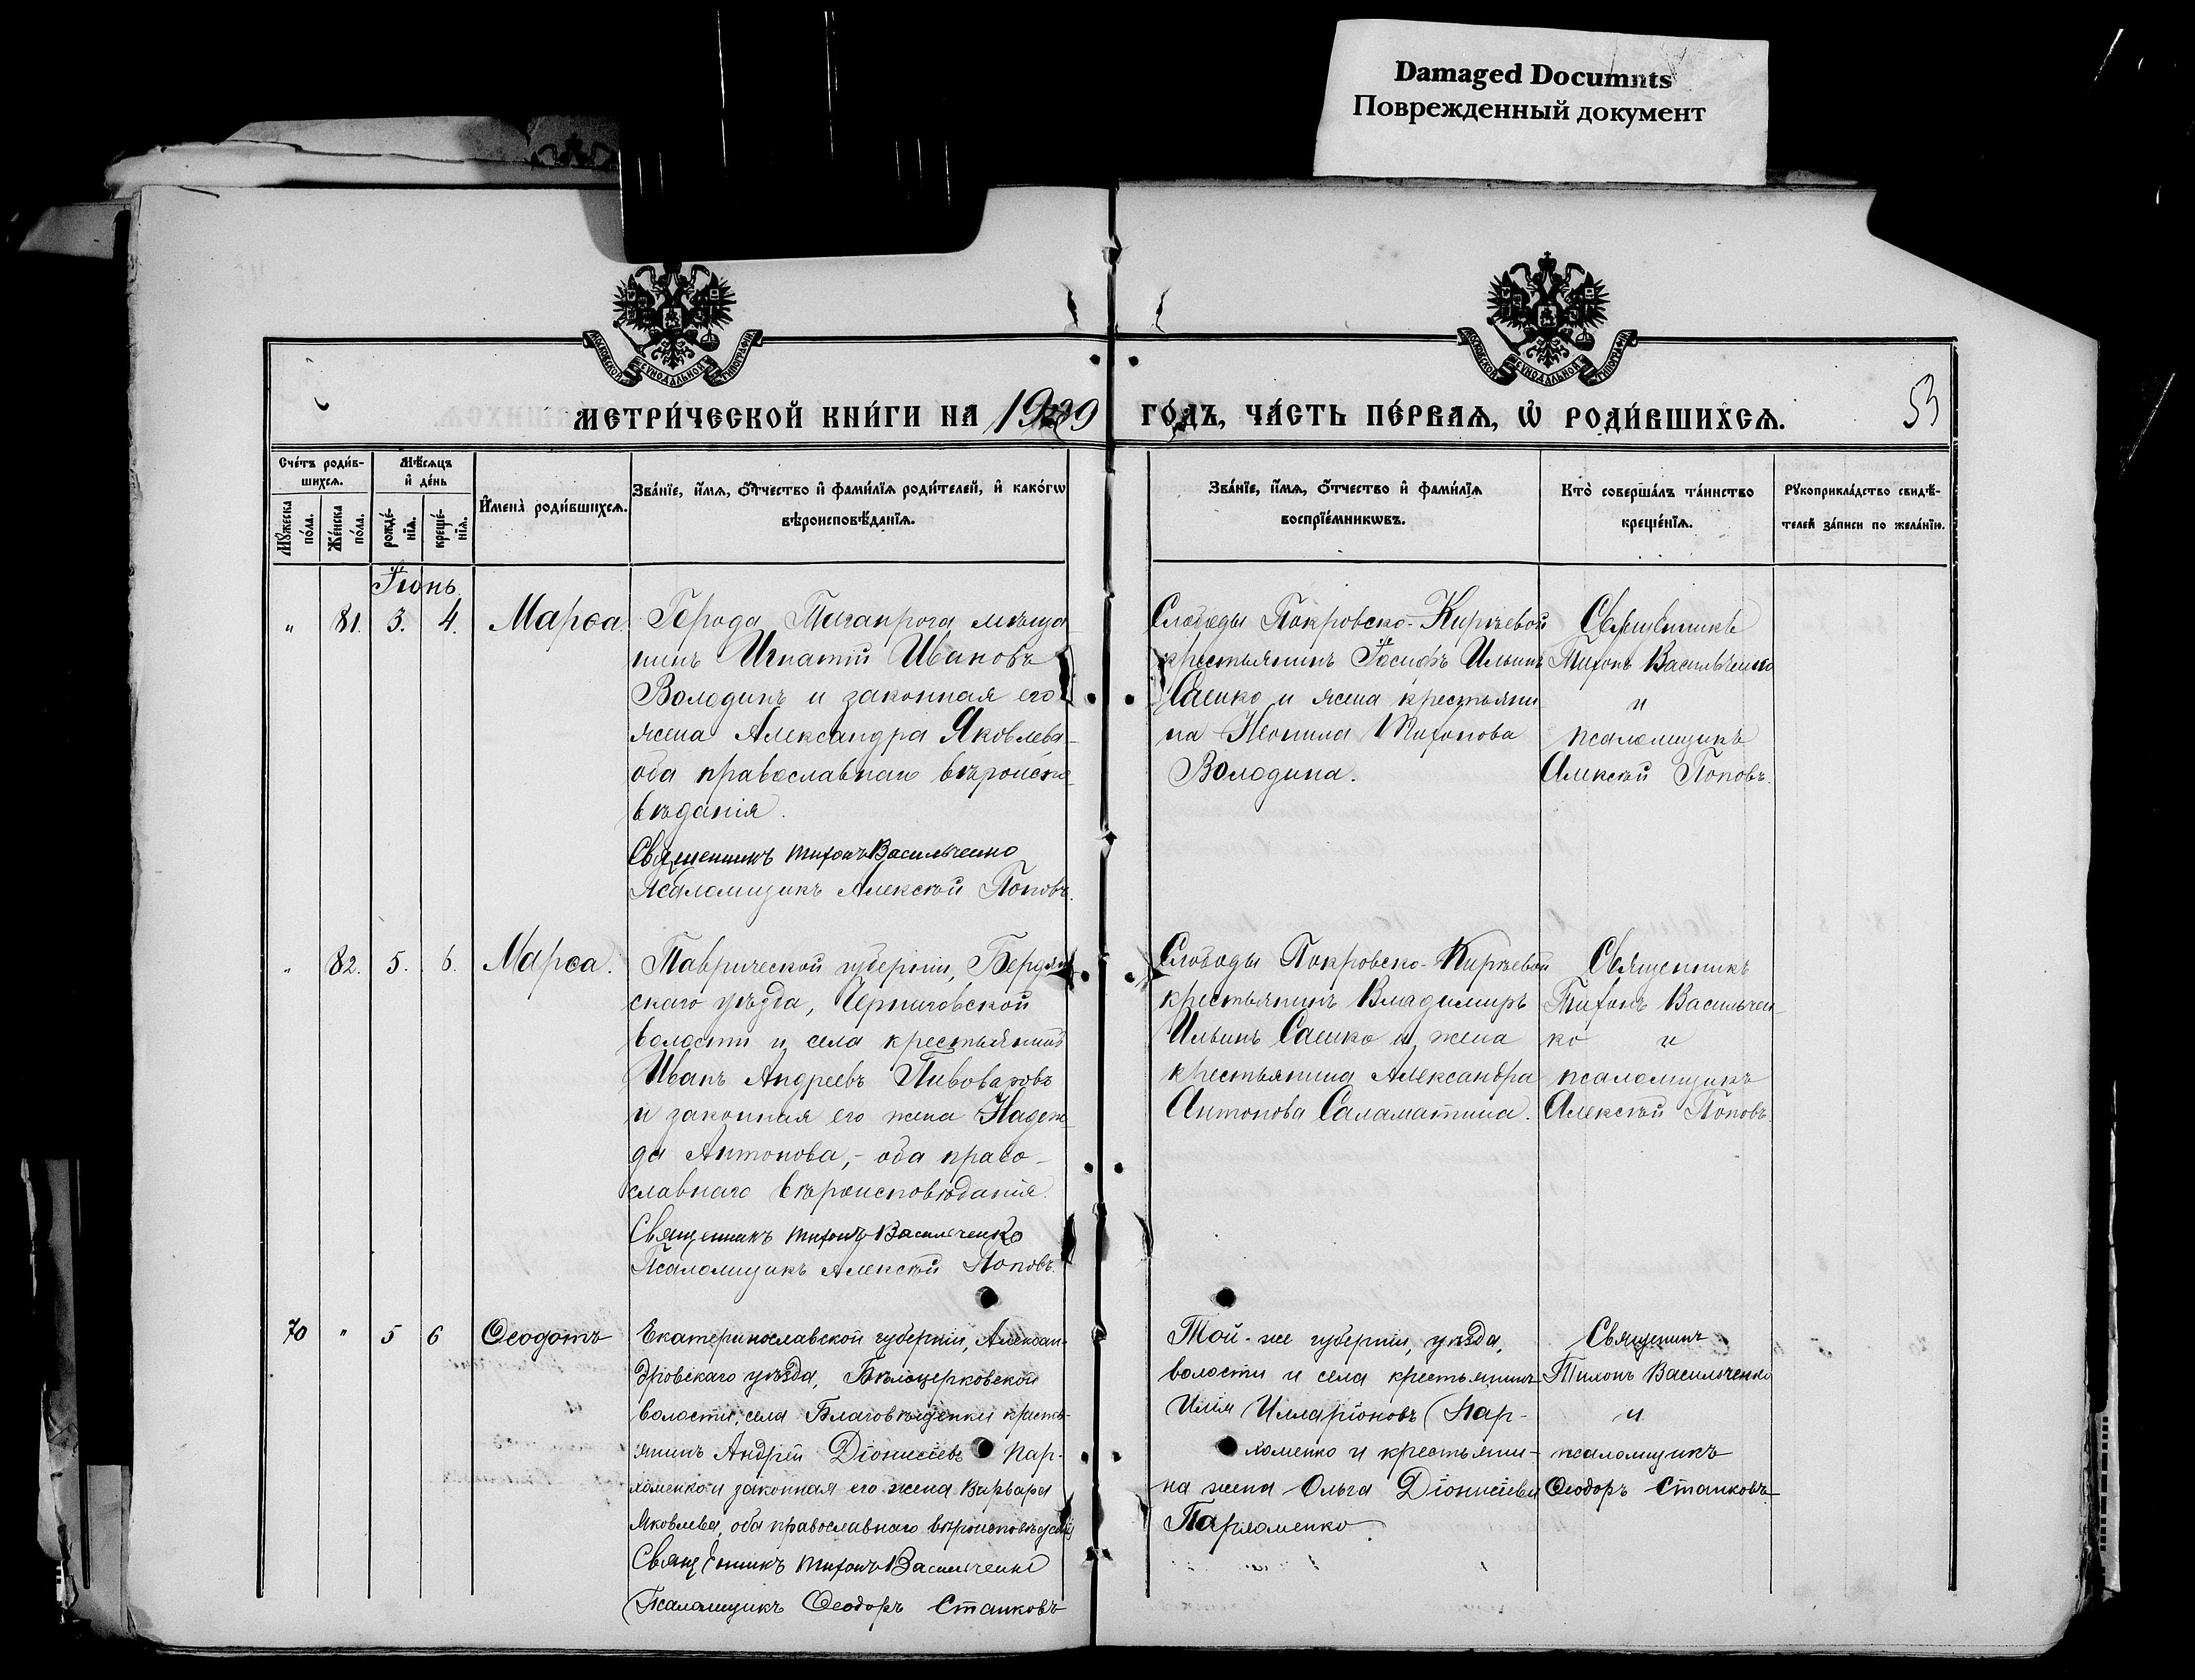 Damaged Documnts
Поврежденный документ
МОСКОВСКОЙ СѴНОДАЛЬНОЙ ТИПОГРАФІИ
МОСКОВСКОЙ СѴНОДАЛЬНОЙ ТИПОГРАФІИ
МЕТРИ́ЧЕСКОЙ КНИ́ГИ НА 1909 ГО́ДЪ, ЧА́СТЬ ПЕ́РВАЯ, Ѡ҆ РОДИ́ВШИХСѦ.
53
Сче́тъ роди́в-
шихсѧ.
Мꙋ́жеска
по́ла.
Же́нска
по́ла.
Мѣ́сѧцъ
и҆ де́нь
рожде́-
нїѧ.
креще́-
нїѧ.
И҆мена̀ роди́вшихсѧ.
Зва́нїе, и҆́мѧ, ѻ҆́тчество и҆ фами́лїѧ роди́телей, и҆ како́гѡ
вѣроисповѣ́данїѧ.
Зва́нїе, и҆́мѧ, ѻ҆́тчество и҆ фами́лїѧ
воспрїе́мникѡвъ.
Кто̀ соверша́лъ та́инство
креще́нїѧ.
Рꙋкоприкла́дство свидѣ́-
телей за́писи по жела́нїю.
Іюнь.
" 81. 3. 4. Марѳа.
Города Таганрога мѣща
нинъ Игнатій Ивановъ
Володинъ и законная его
жена Александра Яковлева
оба православнаго вѣроиспо
вѣданія.
Священникъ Тихонъ Васильченко
Псаломщикъ Алексѣй Поповъ.
Слободы Покровско-Кирѣевой
крестьянинъ Іосифъ Ильинъ
Сашко и жена крестьяни
на Неонила Тихонова
Володина.
Священникъ
Тихонъ Васильченко
и
псаломщикъ
Алексѣй Поповъ.
" 82. 5. 6. Марѳа.
Таврической губерніи, Бердян
скаго уѣзда, Черниговской
волости и села крестьянинъ
Иванъ Андреевъ Пивоваровъ
и законная его жена Надеж
да Антонова,- оба право-
славнаго вѣроисповѣданія.
Священникъ Тихонъ Васильченко
Псаломщикъ Алексѣй Поповъ.
Слободы Покровско-Кирѣевой
крестьянинъ Владимиръ
Ильинъ Сашко и жена
крестьянина Александра
Антонова Саламатина.
Священникъ
Тихонъ Васильчен-
ко и
псаломщикъ
Алексѣй Поповъ.
70 " 5 6 Ѳеодотъ
Екатеринославской губерніи, Алексан-
дровскаго уѣзда, Бѣлоцерковской
волости, села Благовѣщенки кресть-
янинъ Андрей Діонисіевъ Пар-
хоменко и законная его жена Варвара
Яковлева, оба православнаго вѣроисповѣданія
Священникъ Тихонъ Васильченко
Псаломщикъ Ѳеодоръ Станковъ
Той-же губерніи, уѣзда,
волости и села крестьянинъ
Илія Илларіоновъ Пар-
хоменко и крестьяни-
на жена Ольга Діонисіева
Пархоменко.
Священникъ
Тихонъ Васильченко
и
псаломщикъ
Ѳеодоръ Станковъ